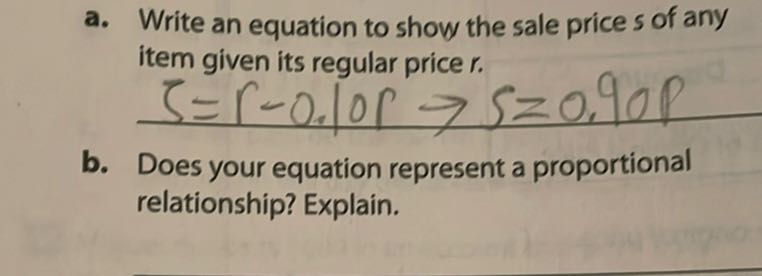 a. Write an equation to show the sale price s of any
item given its regular price r.
s=r-0.10r → s=0.90r
b. Does your equation represent a proportional
relationship? Explain.